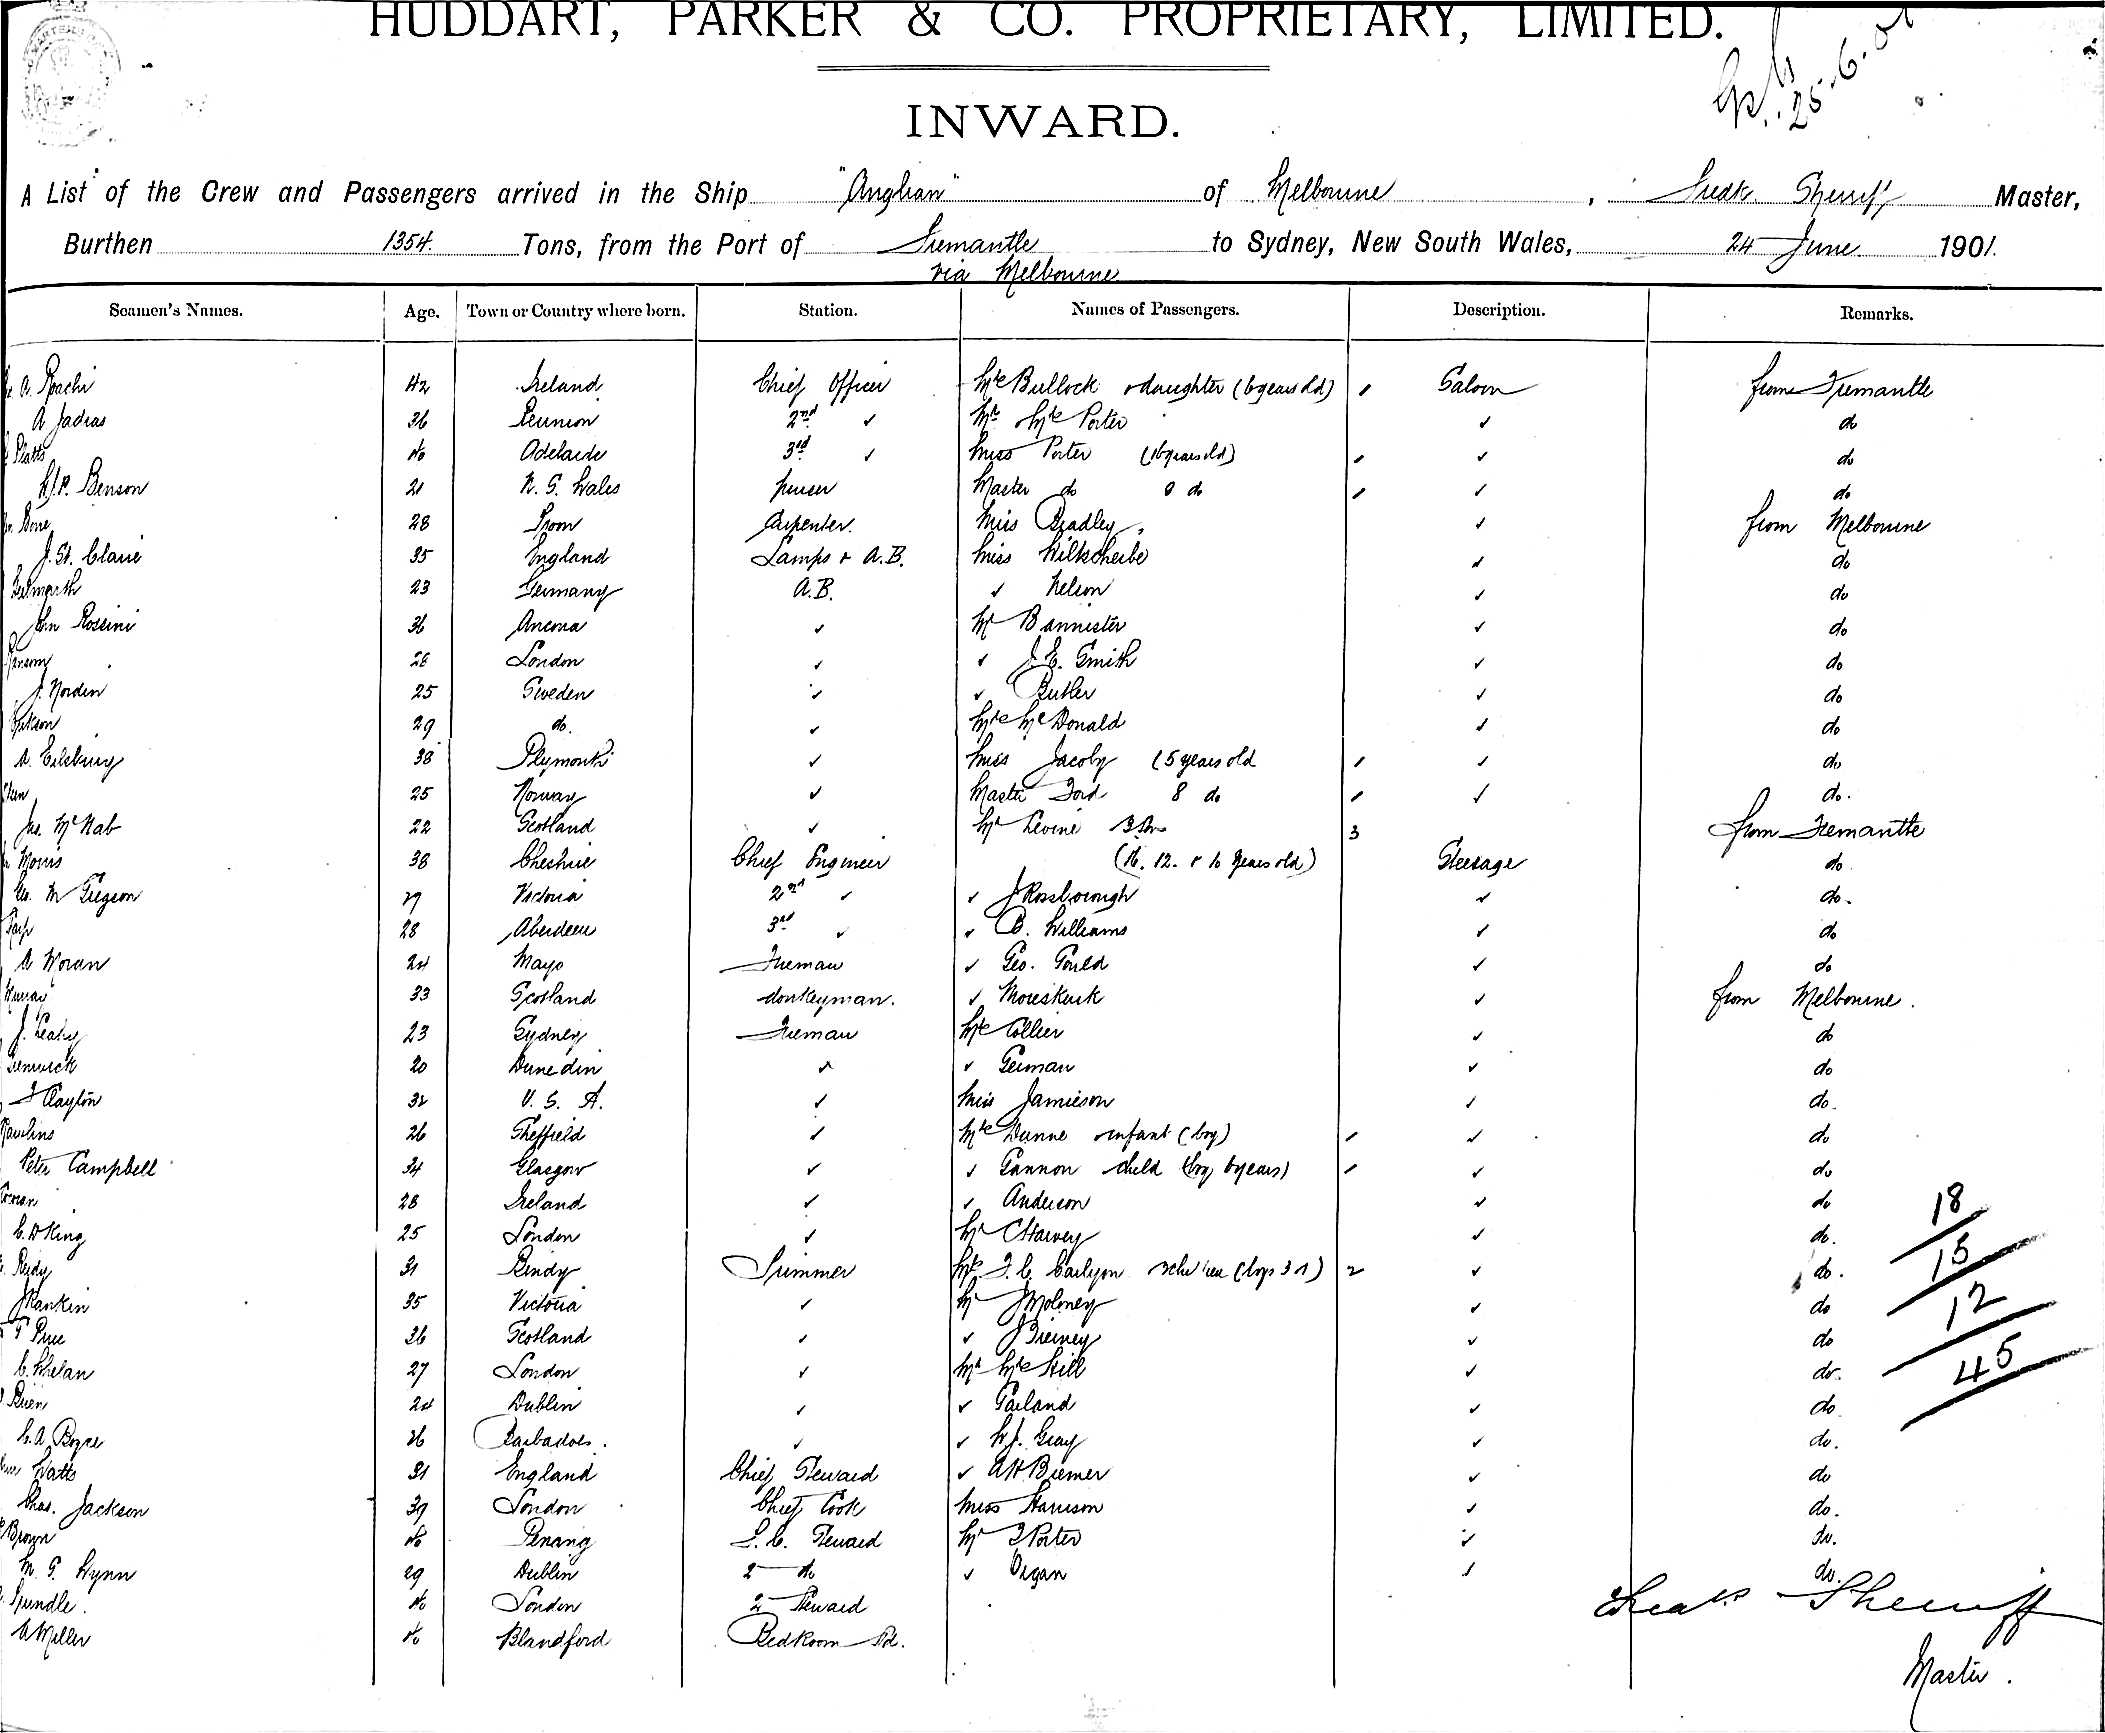 HUDDART, PARKER & CO. PROPRIETARY, LIMITED.
25.6.01
INWARD.
A List of the Crew and Passengers arrived in the Ship "Anglian" of Melbourne, Fredk. Sherriff Master,
Burthen 1354 Tons, from the Port of Fremantle to Sydney, New South Wales, 24 June 1901.
via Melbourne
Seamen's Names. Age. Town or Country where born. Station. Names of Passengers. Description. Remarks.
A. Roachi 42 Ireland Chief Officer Mrs Bullock & daughter (6 years old) 1 Saloon from Fremantle
A Jadras 36 Reunion 2nd ✓ Mr & Mrs Porter ✓ do
Platts 40 Adelaide 3rd ✓ Miss Porter (16 years old) 1 ✓ do
W.P. Benson 21 N. S. Wales purser Master do 9 do 1 ✓ do
28 Carpenter. Miss Bradley ✓ from Melbourne
J. St. Claire 35 England Lamps & A.B. Miss Wilkscheibe ✓ do
23 Germany A.B. ✓ Nelson ✓ do
John Rossini 36 Ancona ✓ Mr Bannister ✓ do
26 London ✓ ✓ J. E. Smith ✓ do
J. Norden 25 Sweden ✓ ✓ Butler ✓ do
29 do. ✓ Mrs McDonald ✓ do
A. Eilsbury 38 Plymouth ✓ Miss Jacoby (5 years old 1 ✓ do
25 Norway ✓ Master Ford 8 do 1 ✓ do.
Jas. McNab 22 Scotland ✓ Mr Levine 3 3 from Fremantle
Morris 38 Cheshire Chief Engineer (16. 12. & 10 years old) Steerage do.
Geo. M Gregson 29 Victoria 2nd ✓ ✓ J Rossborough ✓ do.
28 Aberdeen 3rd ✓ ✓ B. Williams ✓ do
A Moran 24 Mayo Fireman ✓ Geo. Gould ✓ do
Murray 33 Scotland donkeyman. ✓ Moreskuk ✓ from Melbourne.
J. Leahy 23 Sydney Fireman Mrs Collier ✓ do
Fenwick 20 Dunedin ✓ ✓ German ✓ do
F Clayton 32 U. S. A. ✓ Miss Jamieson ✓ do.
Rawlins 26 Sheffield ✓ Mrs Dunne & infant (boy) 1 ✓ do
Peter Campbell 34 Glasgow ✓ ✓ Gannon child (boy 6 years) 1 ✓ do
28 Ireland ✓ ✓ Anderson ✓ do 18
C. D King 25 London ✓ Mr C Harvey ✓ do.
Reidy 31 Trimmer Mrs F. C. Carlyon 2 children (boys 3 & 1) 2 ✓ do. 15
J Rankin 35 Victoria ✓ Mr J Moloney ✓ do 12
36 Scotland ✓ ✓ J Bierney ✓ do
C. Whelan 27 London ✓ Mr & Mrs Hill ✓ do. 45
24 Dublin ✓ ✓ Garland ✓ do.
C. A Boyce 26 Barbados. ✓ ✓ W. J. Gray ✓ do.
Watts 31 England Chief Steward ✓ A H Bremer ✓ do
Chas. Jackson 39 London Chief Cook Miss Harrison ✓ do.
Brown 40 Penang S. C. Steward Mr J Porter ✓ do.
M. G. Wynn 29 Dublin 2 do ✓ Organ ✓ do.
Spindle. 40 London 2 Steward Fredk Sherriff
A Miller 40 Blandford Bedroom Sd.
Master.